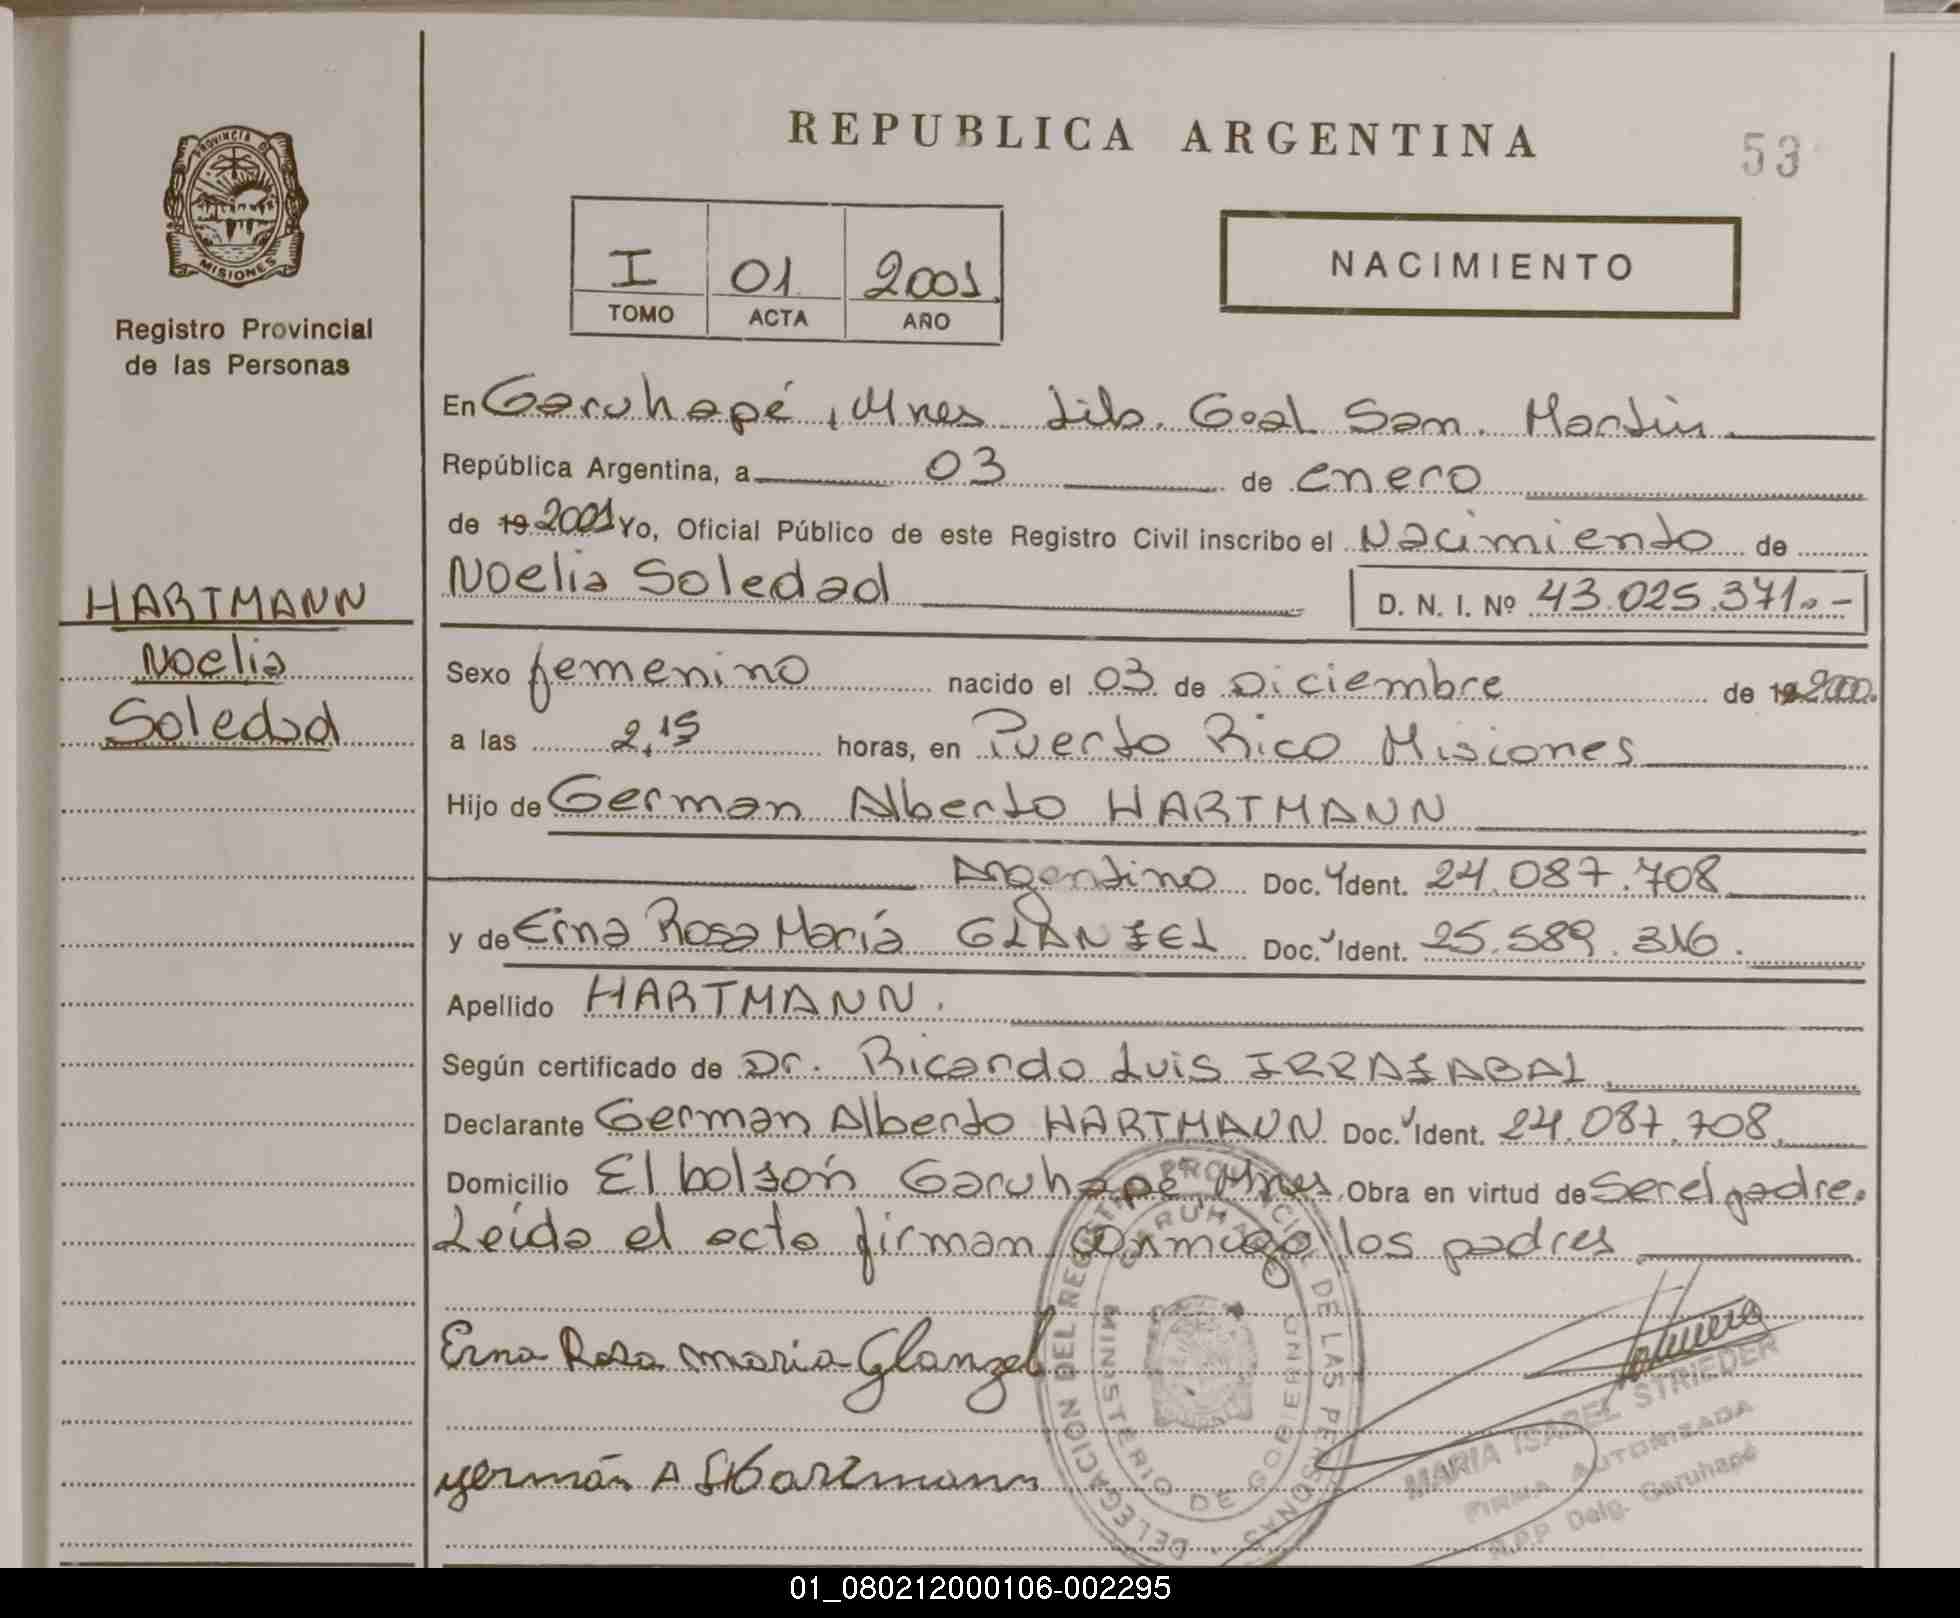 REPUBLICA ARGENTINA
53
PROVINCIA DE
MISIONES
Registro Provincial
de las Personas
I 01 2001
TOMO ACTA AÑO
NACIMIENTO
En Garuhapé, Mnes Lib. Gral San. Martín
República Argentina, a 03 de enero
de 19 2001 Yo, Oficial Público de este Registro Civil inscribo el Nacimiento de
Noelia Soledad D. N. I. Nº 43.025.371.-
HARTMANN
Noelia
Soledad
Sexo femenino nacido el 03 de Diciembre de 19 2000.
a las 2,15 horas, en Puerto Rico Misiones
Hijo de German Alberto HARTMANN
Argentino Doc. Ident. 24.087.708
y de Erna Rosa María GLANZEL Doc. Ident. 25.589.316.
Apellido HARTMANN.
Según certificado de Dr. Ricardo Luis IRRAZABAL
Declarante German Alberto HARTMANN Doc. Ident. 24.087.708
Domicilio El bolsón Garuhapé, Mnes Obra en virtud de Ser el padre.
Leída el acta firman conmigo los padres
Erna Rosa maria Glanzel
germán A Hartmann
DELEGACION DEL REGISTRO PROVINCIAL DE LAS PERSONAS
GARUHAPE
MINISTERIO DE GOBIERNO
MARIA ISABEL STRIEDER
FIRMA AUTORIZADA
R.P.P Delg. Garuhapé
01_080212000106-002295